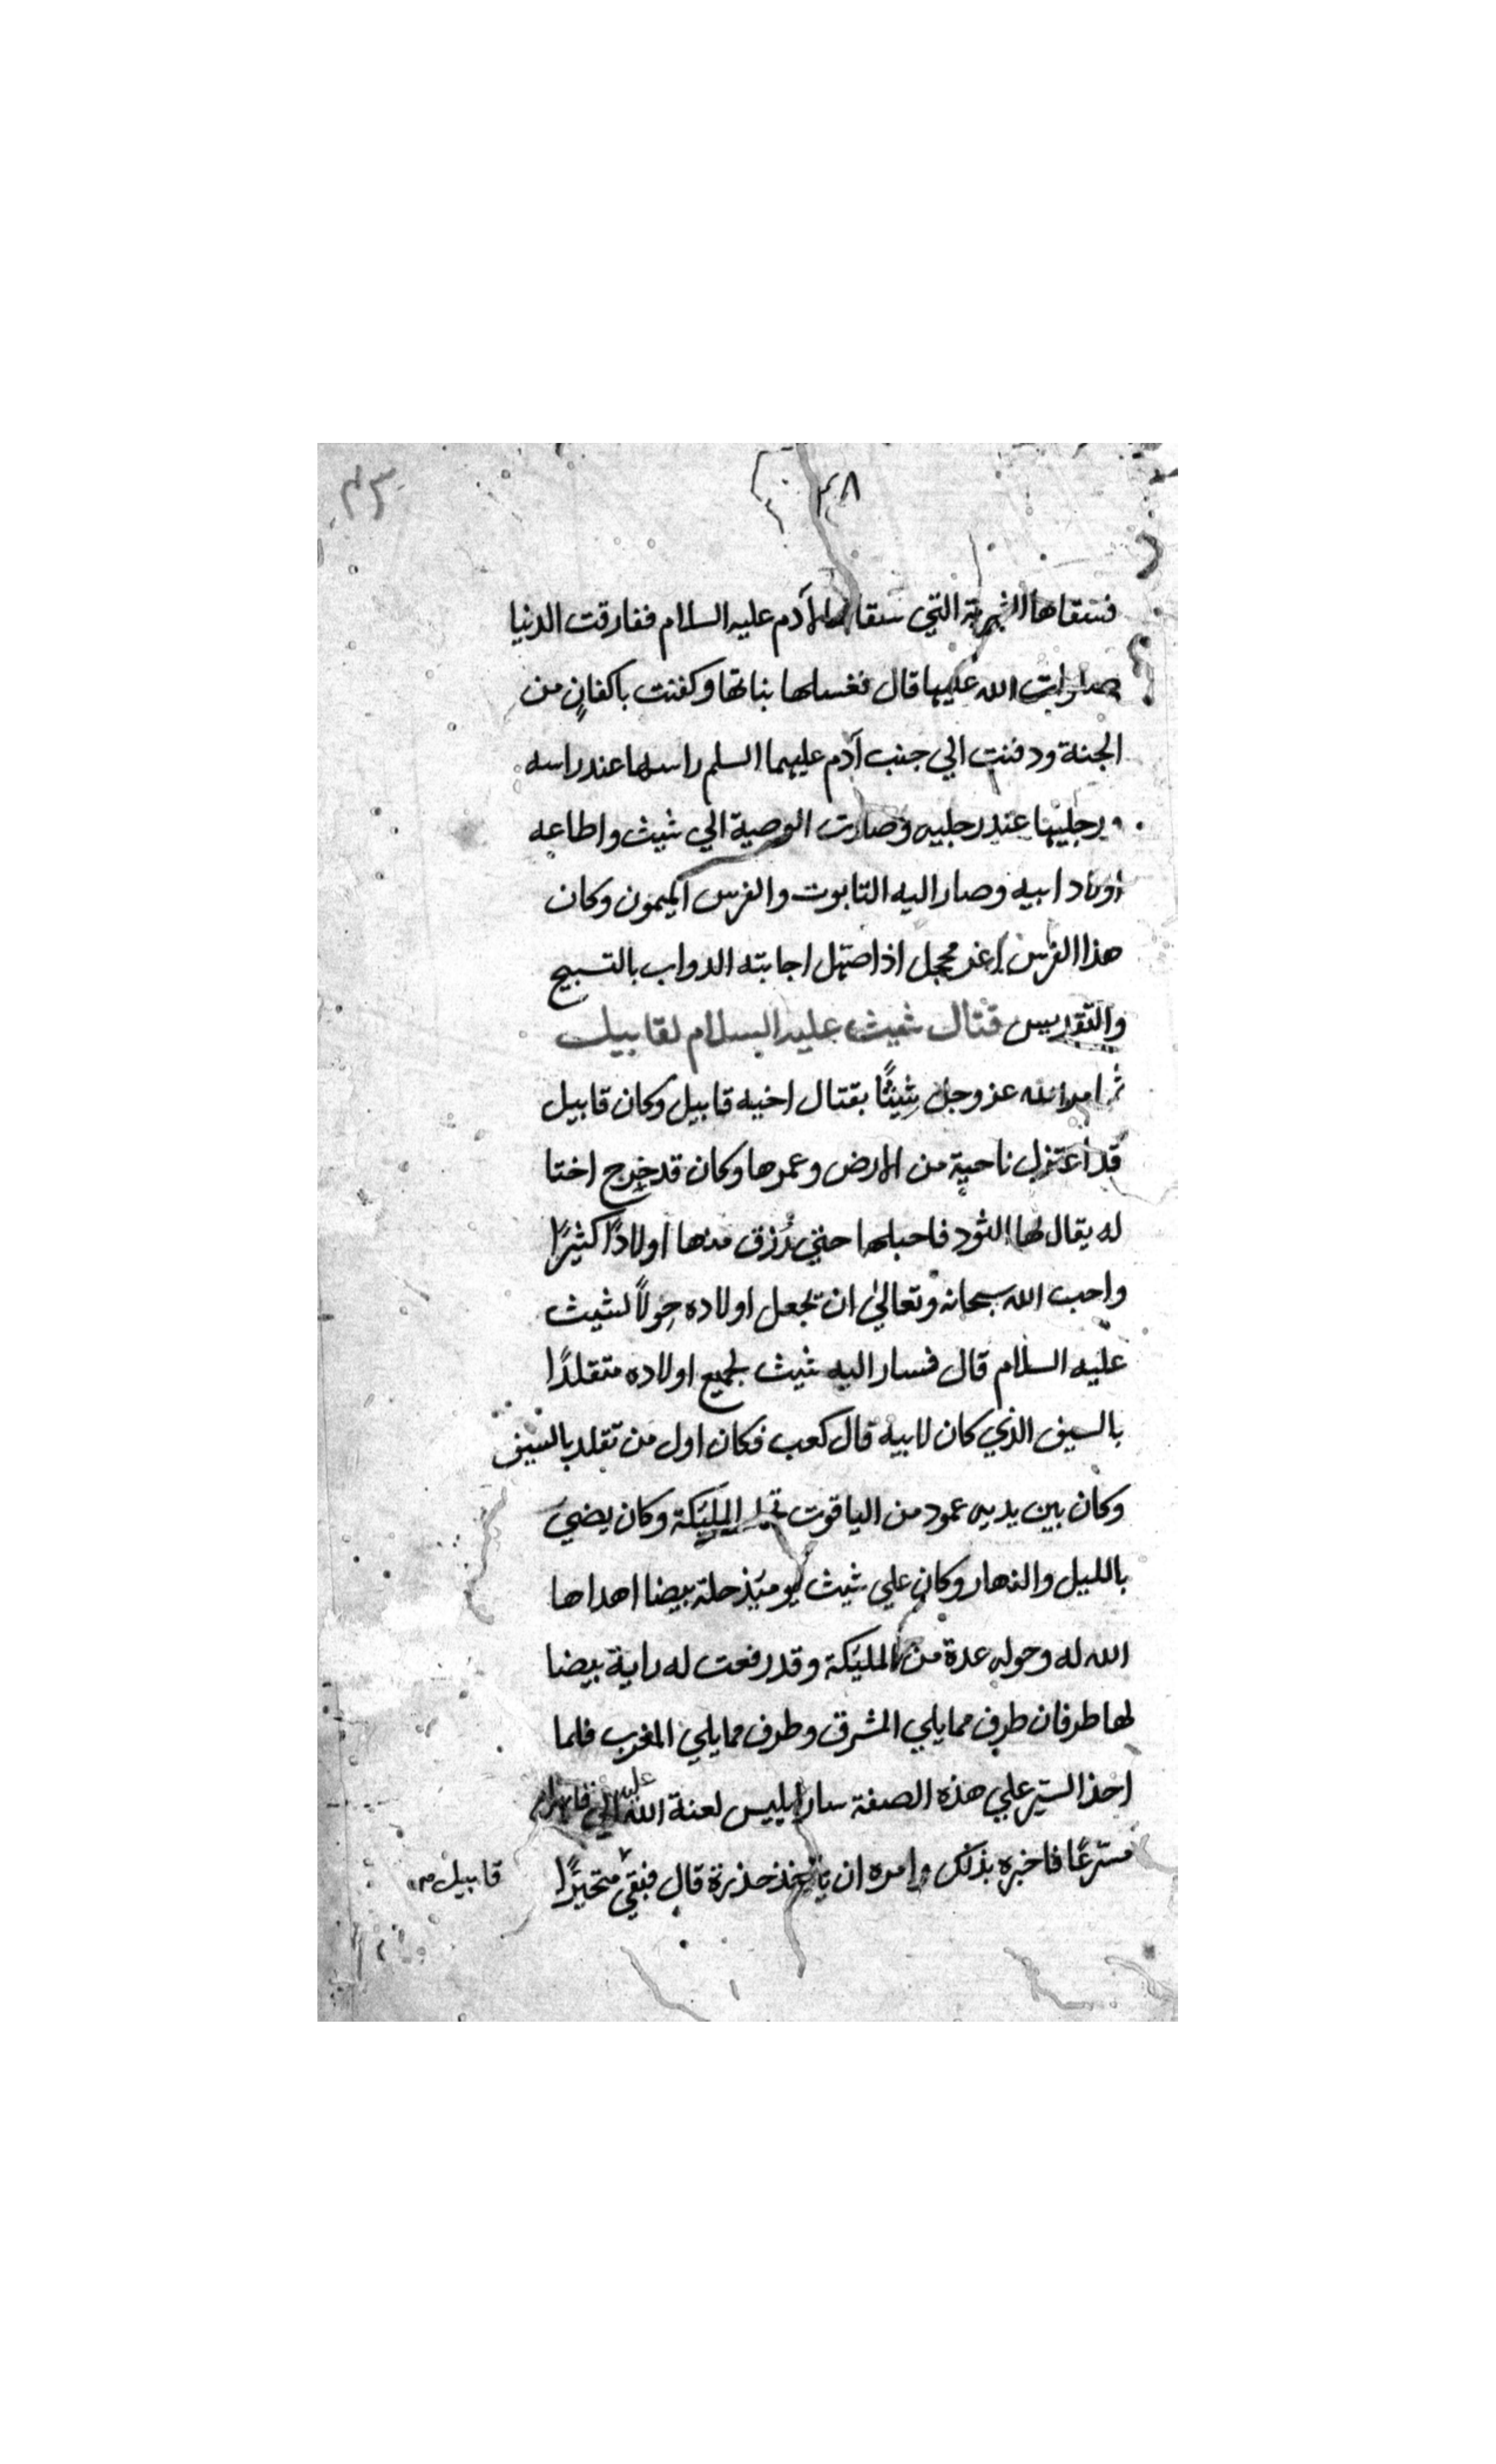 ٣٨
فسقاها الشربة التي سقاها لآدم عليه السلام ففارقت الدنيا
صلوات الله عليها قال فغسلها بناتها وكفنت باكفانٍ من
الجنة ودفنت الي جنب آدم عليهما السلم راسها عند راسه
ورجليها عند رجليه وصارت الوصية الي شيث واطاعه
اولاد ابيه وصار اليه التابوت والفرس الميمون وكان
هذا الفرس اغر محجل اذا صهل اجابته الدواب بالتسبيح
والتقديس قتال شيث عليه السلام لقابيل
ثم امر الله عز وجل شيثًا بقتال اخيه قابيل وكان قابيل
قد اعتزل ناحية من الارض وعمرها وكان قد خرج اختا
له يقال لها الثود فاحبلها حتي رُزق منها اولادًا كثيرًا
واحب الله سبحانه وتعالي ان يجعل اولاده خِولاً لشيث
عليه السلام قال فسار اليه شيث بجميع اولاده متقلدًا
بالسيف الذي كان لابيه قال كعب فكان اول من تقلد بالسيف
وكان بين يديه عمود من الياقوت المليكة وكان يضيَ
بالليل والنهار وكان علي شيث يوميَذ حلة بيضا اهداها
الله له وحوله عدة من المليكة وقد رفعت له راية بيضا
لها طرفان طرف مما يلي المشرق وطرف مما يلي المغرب فلما
اخذ السير علي هذه الصفة سار ابليس لعنة الله عليه الي
مسرعًا فاخبره بذلك وامره ان حذره قال فبقي متحيرًا
قابيل صح